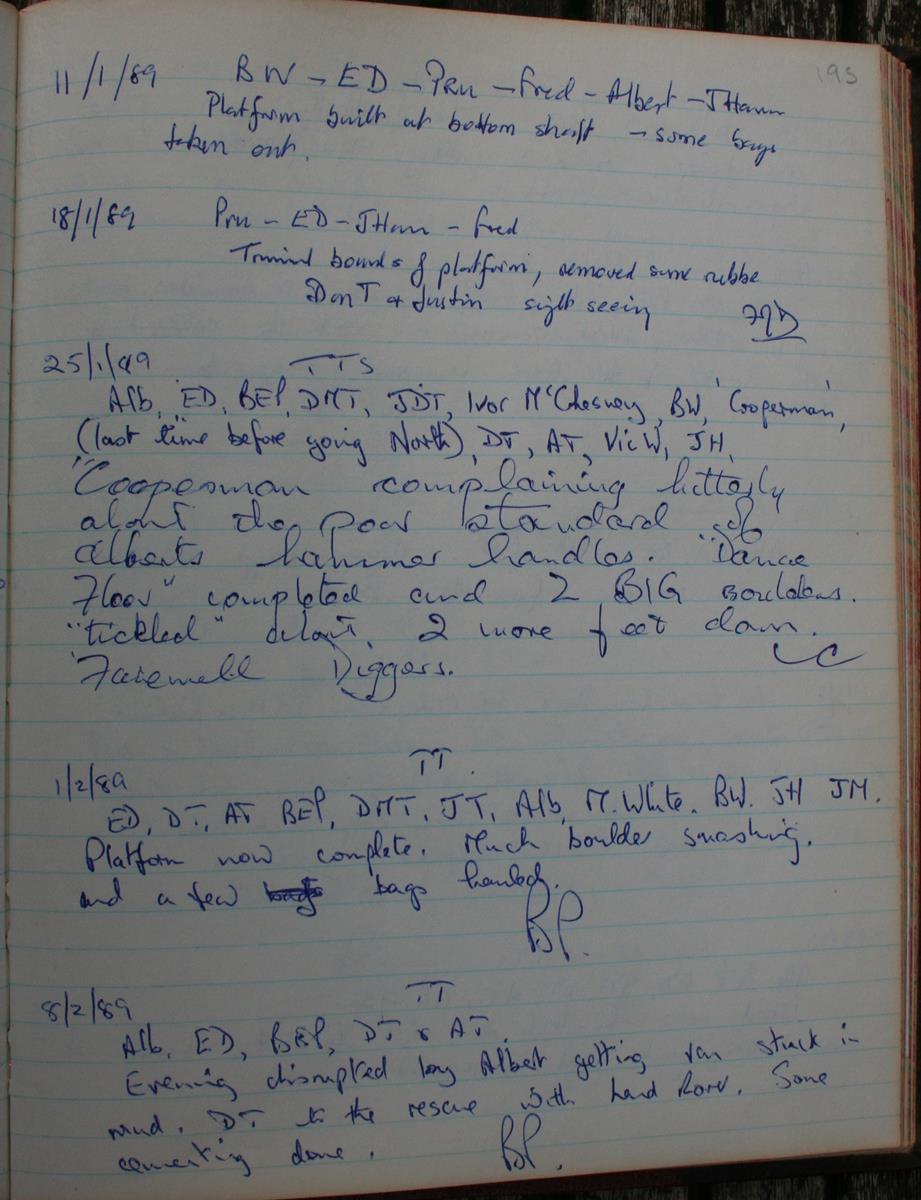 195
11/1/89 BW - ED - Pru - Fred - Albert - JHann
Platform built at bottom shaft - some bags
taken out.
18/1/89 Pru - ED - JHann - Fred
boards of platform, removed some
Don T & Justin sight seeing
25/1/89 TTS
Alb, ED, BEP, DMT, JDT, Ivor McChesney, BW, 'Cooperman',
(last time before going North), DT, AT, Vic W, JH,
"Cooperman complaining bitterly
about the poor standard of
Alberts hammer handles. "Dance
Floor" completed and 2 BIG boulders.
"tickled" about, 2 more feet down.
Farewell Diggers.
1/2/89 TT.
ED, DT, AT BEP, DMT, JT, Alb, M. White. BW. JH JM.
Platform now complete. Much boulder smashing.
and a few bags hauled.
BP.
8/2/89 TT
Alb, ED, BEP, DT & AT.
Evening disrupted by Albert getting van stuck in
mud. DT to the rescue with Land Rover. Some
cementing done. BP.